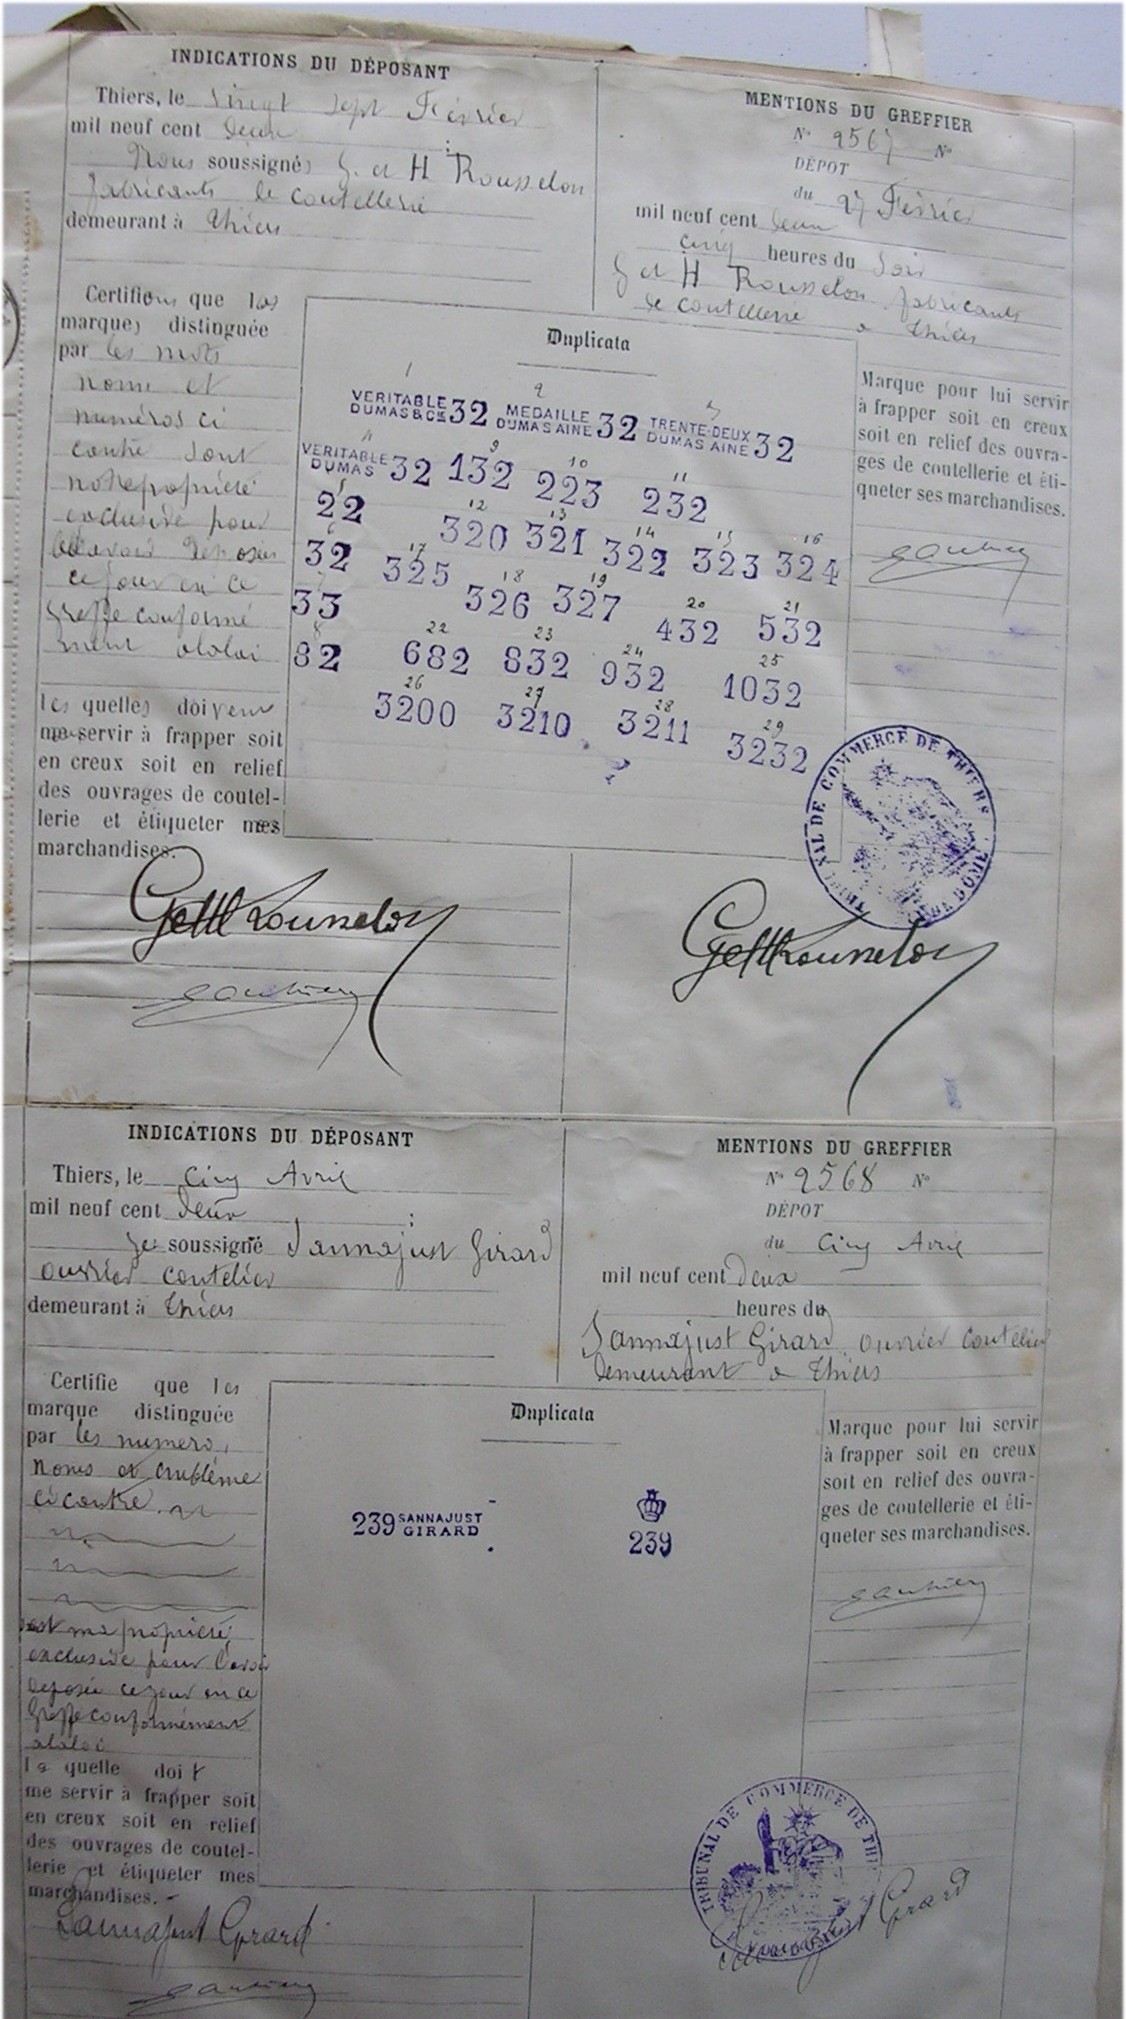 INDICATIONS DU DÉPOSANT
Thiers, le vingt sept Février
mil neuf cent deux
Nous soussignés G. et H Rousselon
fabricants de coutellerie
demeurant à Thiers
MENTIONS DU GREFFIER
N° 2567 N°
DÉPOT
du 27 Février
mil neuf cent deux
cinq heures du soir
G et H Rousselon fabricants
de coutellerie a Thiers
Certifions que les
marques distinguée
par les mots
noms et
numéros ci
contre sont
notre propriété
exclusive pour
les avoir déposés
ce jour en ce
greffe conformé
ment a la loi
les quelles doivent
me servir à frapper soit
en creux soit en relief
des ouvrages de coutel-
lerie et étiqueter mes
marchandises.
Duplicata
1 2 3
VERITABLE DUMAS & CIE 32 MEDAILLE DUMAS AINE 32 TRENTE-DEUX DUMAS AINE 32
4 9 10 11
VERITABLE DUMAS 32 132 223 232
5 12 13 14 15 16
22 320 321 322 323 324
6 17 18 19 20 21
32 325 326 327 432 532
7 22 23 24 25
33 682 832 932 1032
8 26 27 28 29
82 3200 3210 3211 3232
Marque pour lui servir
à frapper soit en creux
soit en relief des ouvra-
ges de coutellerie et éti-
queter ses marchandises.
TRIBUNAL DE COMMERCE DE THIERS
G et H Rousselon
G et H Rousselon
INDICATIONS DU DÉPOSANT
Thiers, le Cinq Avril
mil neuf cent deux
Je soussigné Sannajust Girard
ouvrier coutelier
demeurant à Thiers
MENTIONS DU GREFFIER
N° 2568 N°
DÉPOT
du Cinq Avril
mil neuf cent deux
heures du
Sannajust Girard ouvrier coutelier
demeurant a Thiers
Certifie que les
marque distinguée
par les numero,
noms et emblême
ci contre
est ma propriété
exclusive pour l'avoir
déposée ce jour en ce
Greffe conformément
a la loi
la quelle doit
me servir à frapper soit
en creux soit en relief
des ouvrages de coutel-
lerie et étiqueter mes
marchandises.
Duplicata
239 SANNAJUST GIRARD
239
Marque pour lui servir
à frapper soit en creux
soit en relief des ouvra-
ges de coutellerie et éti-
queter ses marchandises.
TRIBUNAL DE COMMERCE DE THI
Sannajust Girard
Sannajust Girard